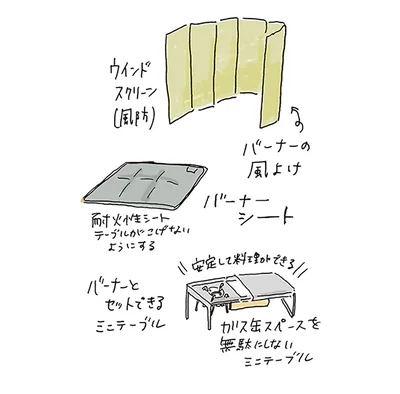 ウインド
スクリーン
(風防)
バーナーの
風よけ
バーナー
シート
耐火性シート
テーブルがこげない
ようにする
\\安定して料理ができる//
バーナーと
セットできる
ミニテーブル
ガス缶スペースを
無駄にしない
ミニテーブル